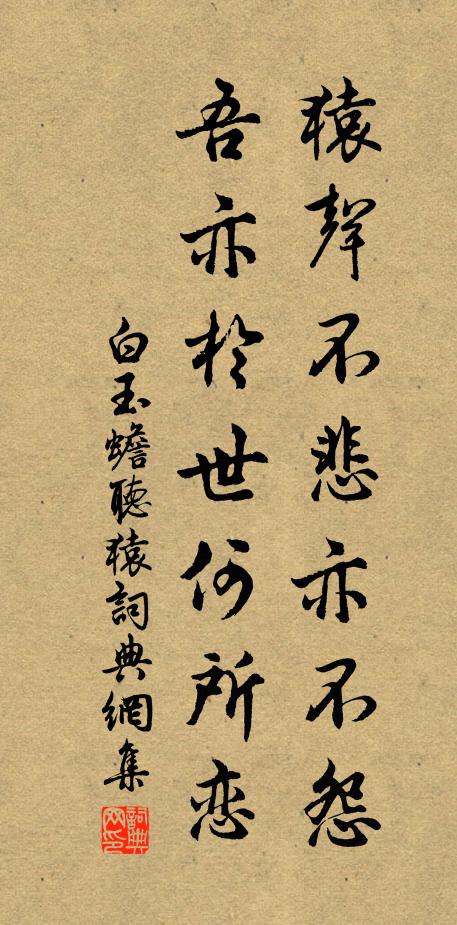 猿聲不悲亦不怨
吾亦於世何所恋
白玉蟾聽猿詞典網集
詞典网印